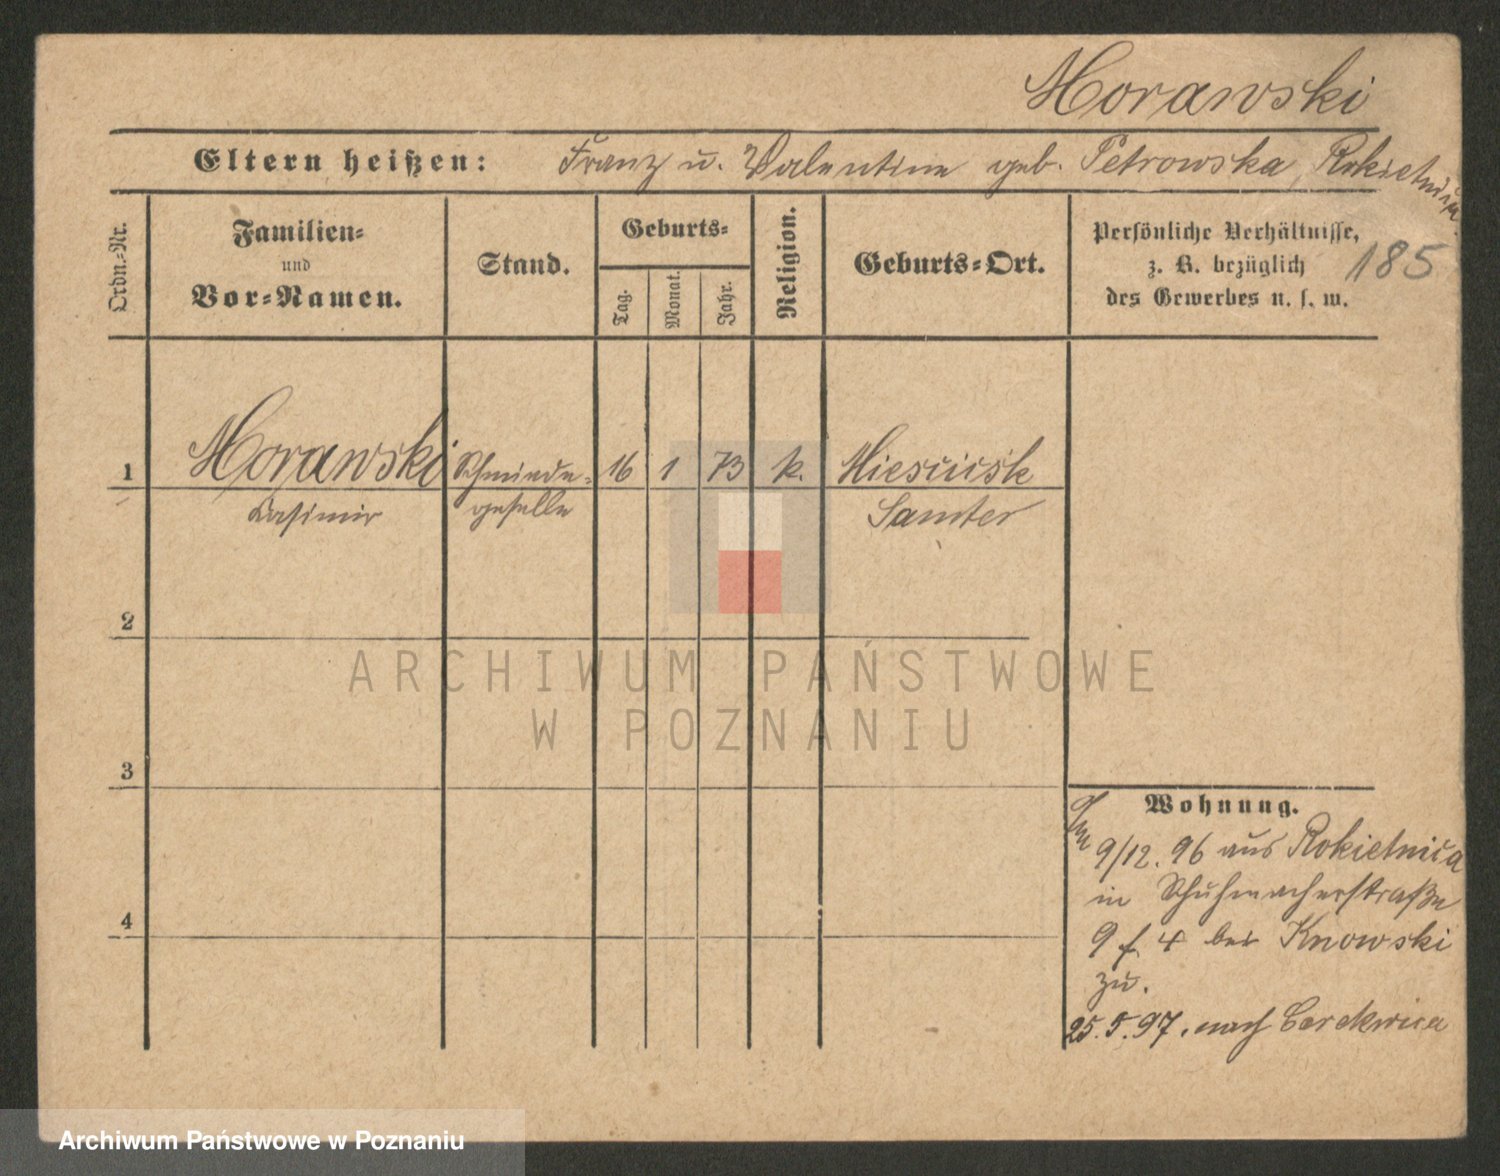 Morawski
Eltern heißen: Franz u. Valentine geb. Petrowska, Rokietnica
Ordn.-Nr.
Familien-
und
Vor-Namen.
Stand.
Geburts-
Tag.
Monat.
Jahr.
Religion.
Geburts-Ort.
Persönliche Verhältnisse,
z. B. bezüglich
des Gewerbes u. s. w.
185
1 Morawski Schmiede- 16 1 73 k.
Kasimir geselle Samter
2
3
4
Wohnung.
9/12. 96 aus Rokietnica
in Schuhmacherstraße
9 f. 4 bei Knowski
zu.
25.5.97. nach Cerekwica
ARCHIWUM PAŃSTWOWE
W POZNANIU
Archiwum Państwowe w Poznaniu